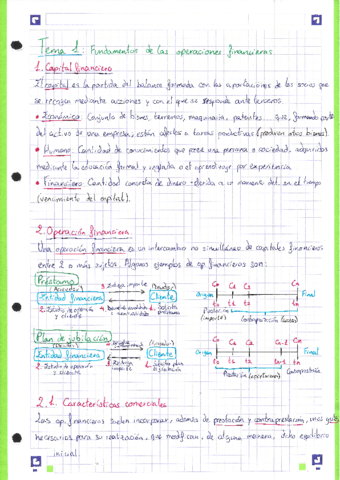 Tema 1: Fundamentos de las operaciones financieras
1. Capital financiero
El capital es la partida del balance formada con las aportaciones de los socios que
se recogen mediante acciones y con el que se responde ante terceros.
• Económico: Conjunto de bienes, terrenos, maquinaria, patentes... que, formando parte
del activo de una empresa, están afectos a tareas productivas (producen otros bienes).
• Humano: Cantidad de conocimientos que posee una persona o sociedad, adquiridos
mediante la educación formal y reglada o el aprendizaje por experiencia.
• Financiero: Cantidad concreta de dinero referida a un momento det. en el tiempo
(vencimiento del capital).
2. Operación financiera
Una operación financiera es un intercambio no simultáneo de capitales financieros
entre 2 o más sujetos. Algunos ejemplos de op. financieras son:
Préstamo
Entidad financiera
Cliente
Origen
Final
C0 C1 C2 Cn
t0 t1 t2 tn
Prestación
(importe)
Contraprestación
Plan de jubilación
Entidad financiera
Cliente
Origen
Final
t0 t1 t2
Prestación
Contraprestación
2.1. Características comerciales
Las op. financieras suelen incorporar, además de prestación y contraprestación, unos gastos
necesarios para su realización, que modifican, de alguna manera, dicho equilibrio
inicial.